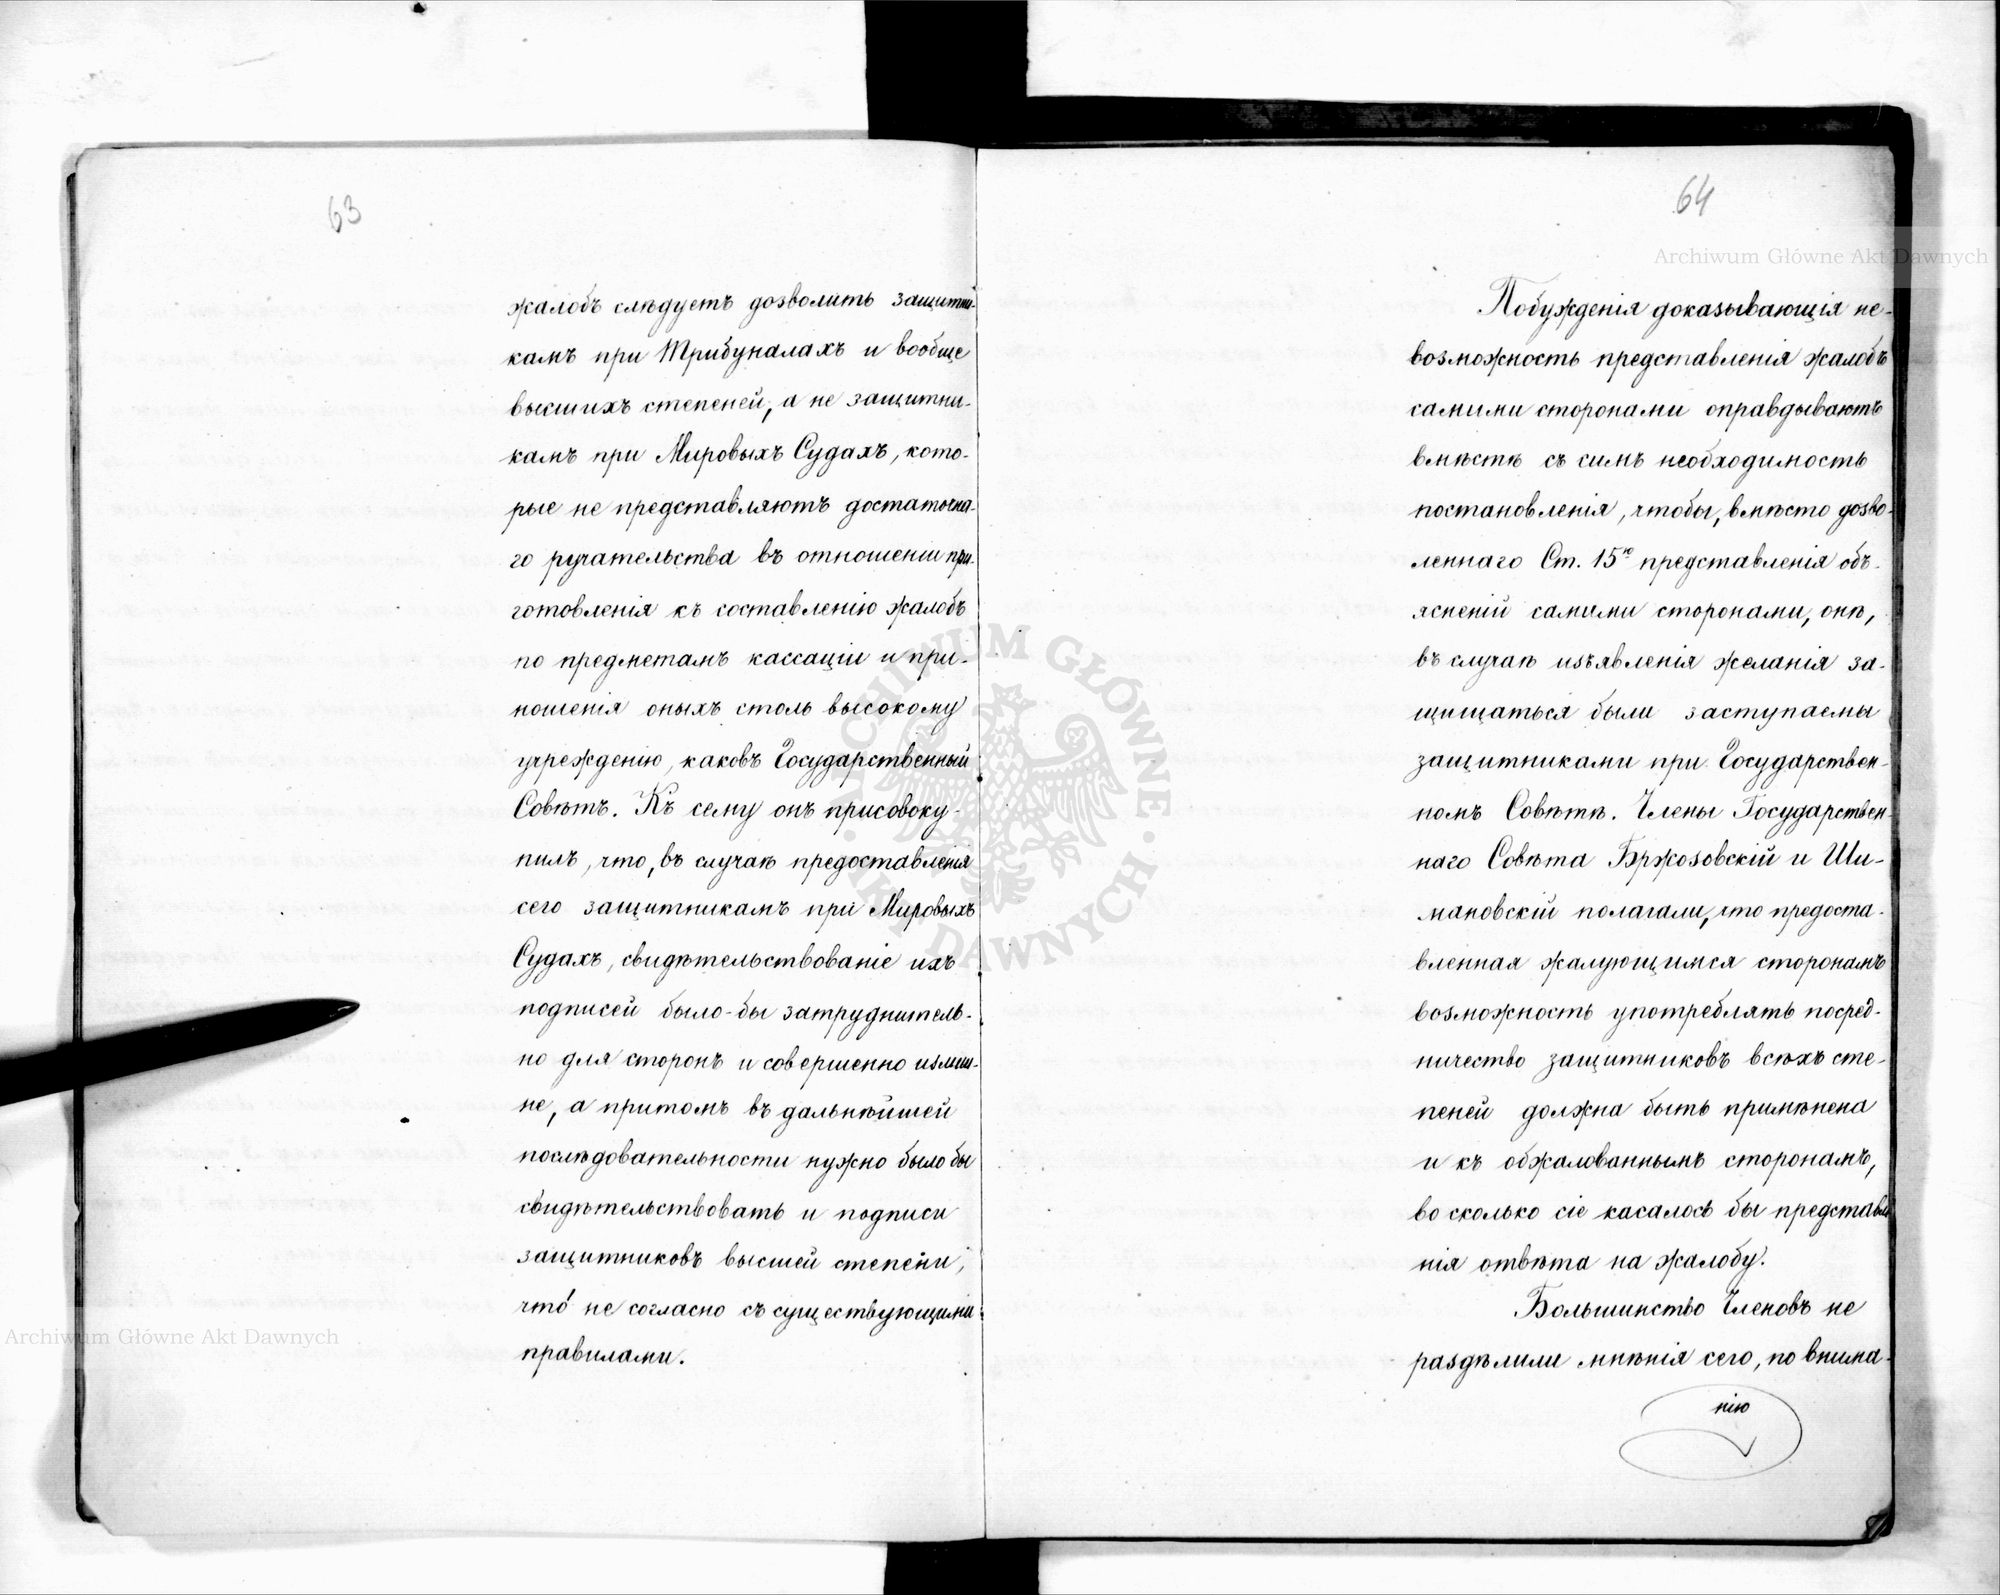 63
жалобъ слѣдуетъ дозволить защитни-
камъ при Трибуналахъ и вообще
высшихъ степеней, а не защитни-
камъ при Мировыхъ Судахъ, кото-
рые не представляютъ достаточна-
го ручательства въ отношеніи при-
готовленія къ составленію жалобъ
по предметамъ кассаціи и при-
ношенія оныхъ столь высокому
учрежденію, каковъ Государственный
Совѣтъ. Къ сему онъ присовоку-
пилъ, что, въ случаѣ предоставленія
сего защитникамъ при Мировыхъ
Судахъ, свидѣтельствованіе ихъ
подписей было-бы затруднитель-
но для сторонъ и совершенно излиш-
не, а притомъ въ дальнѣйшей
послѣдовательности нужно было бы
свидѣтельствовать и подписи
защитниковъ высшей степени,
что́ не согласно съ существующими
правилами.
64
Побужденія доказывающія не-
возможность представленія жалобъ
самими сторонами оправдываютъ
вмѣстѣ съ симъ необходимость
постановленія, чтобы, вмѣсто дозво-
леннаго Ст. 15ю представленія объ-
ясненій самими сторонами, онѣ,
въ случаѣ изъявленія желанія за-
щищаться были заступаемы
защитниками при Государствен-
номъ Совѣтѣ. Члены Государствен-
наго Совѣта Бржозовскій и Ши-
мановскій полагали, что предоста-
вленная жалующимся сторонамъ
возможность употреблять посред-
ничество защитниковъ всѣхъ сте-
пеней должна быть примѣнена
и къ обжалованнымъ сторонамъ,
во сколько сіе касалось бы представле
нія отвѣта на жалобу.
Большинство Членовъ не
раздѣлили мнѣнія сего, по внима-
нію
Archiwum Główne Akt Dawnych
ARCHIWUM GŁÓWNE · AKT DAWNYCH ·
Archiwum Główne Akt Dawnych